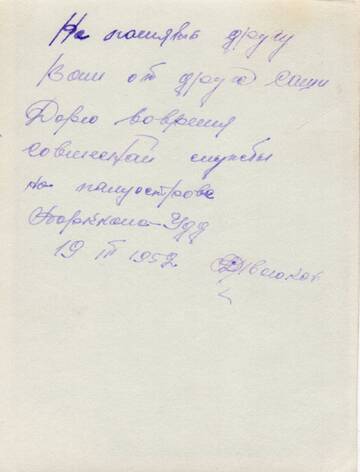 На память другу
Ване от друга Саши
Дарю во время
совместной службы
на полуострове
Порккала-Удд
19 III 1952